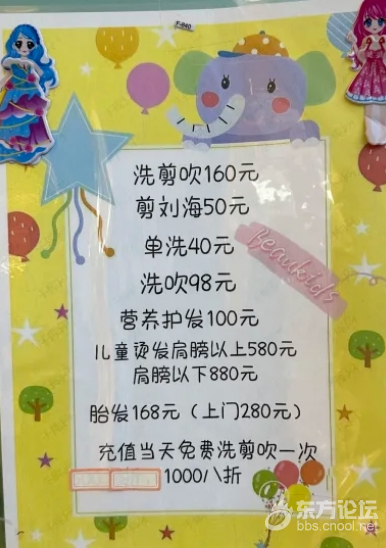 洗剪吹160元
剪刘海50元
单洗40元
洗吹98元
Beaukids
营养护发100元
儿童烫发肩膀以上580元
肩膀以下880元
胎发168元（上门280元）
充值当天免费洗剪吹一次
1000/八折
东方论坛
bbs.cnool.net